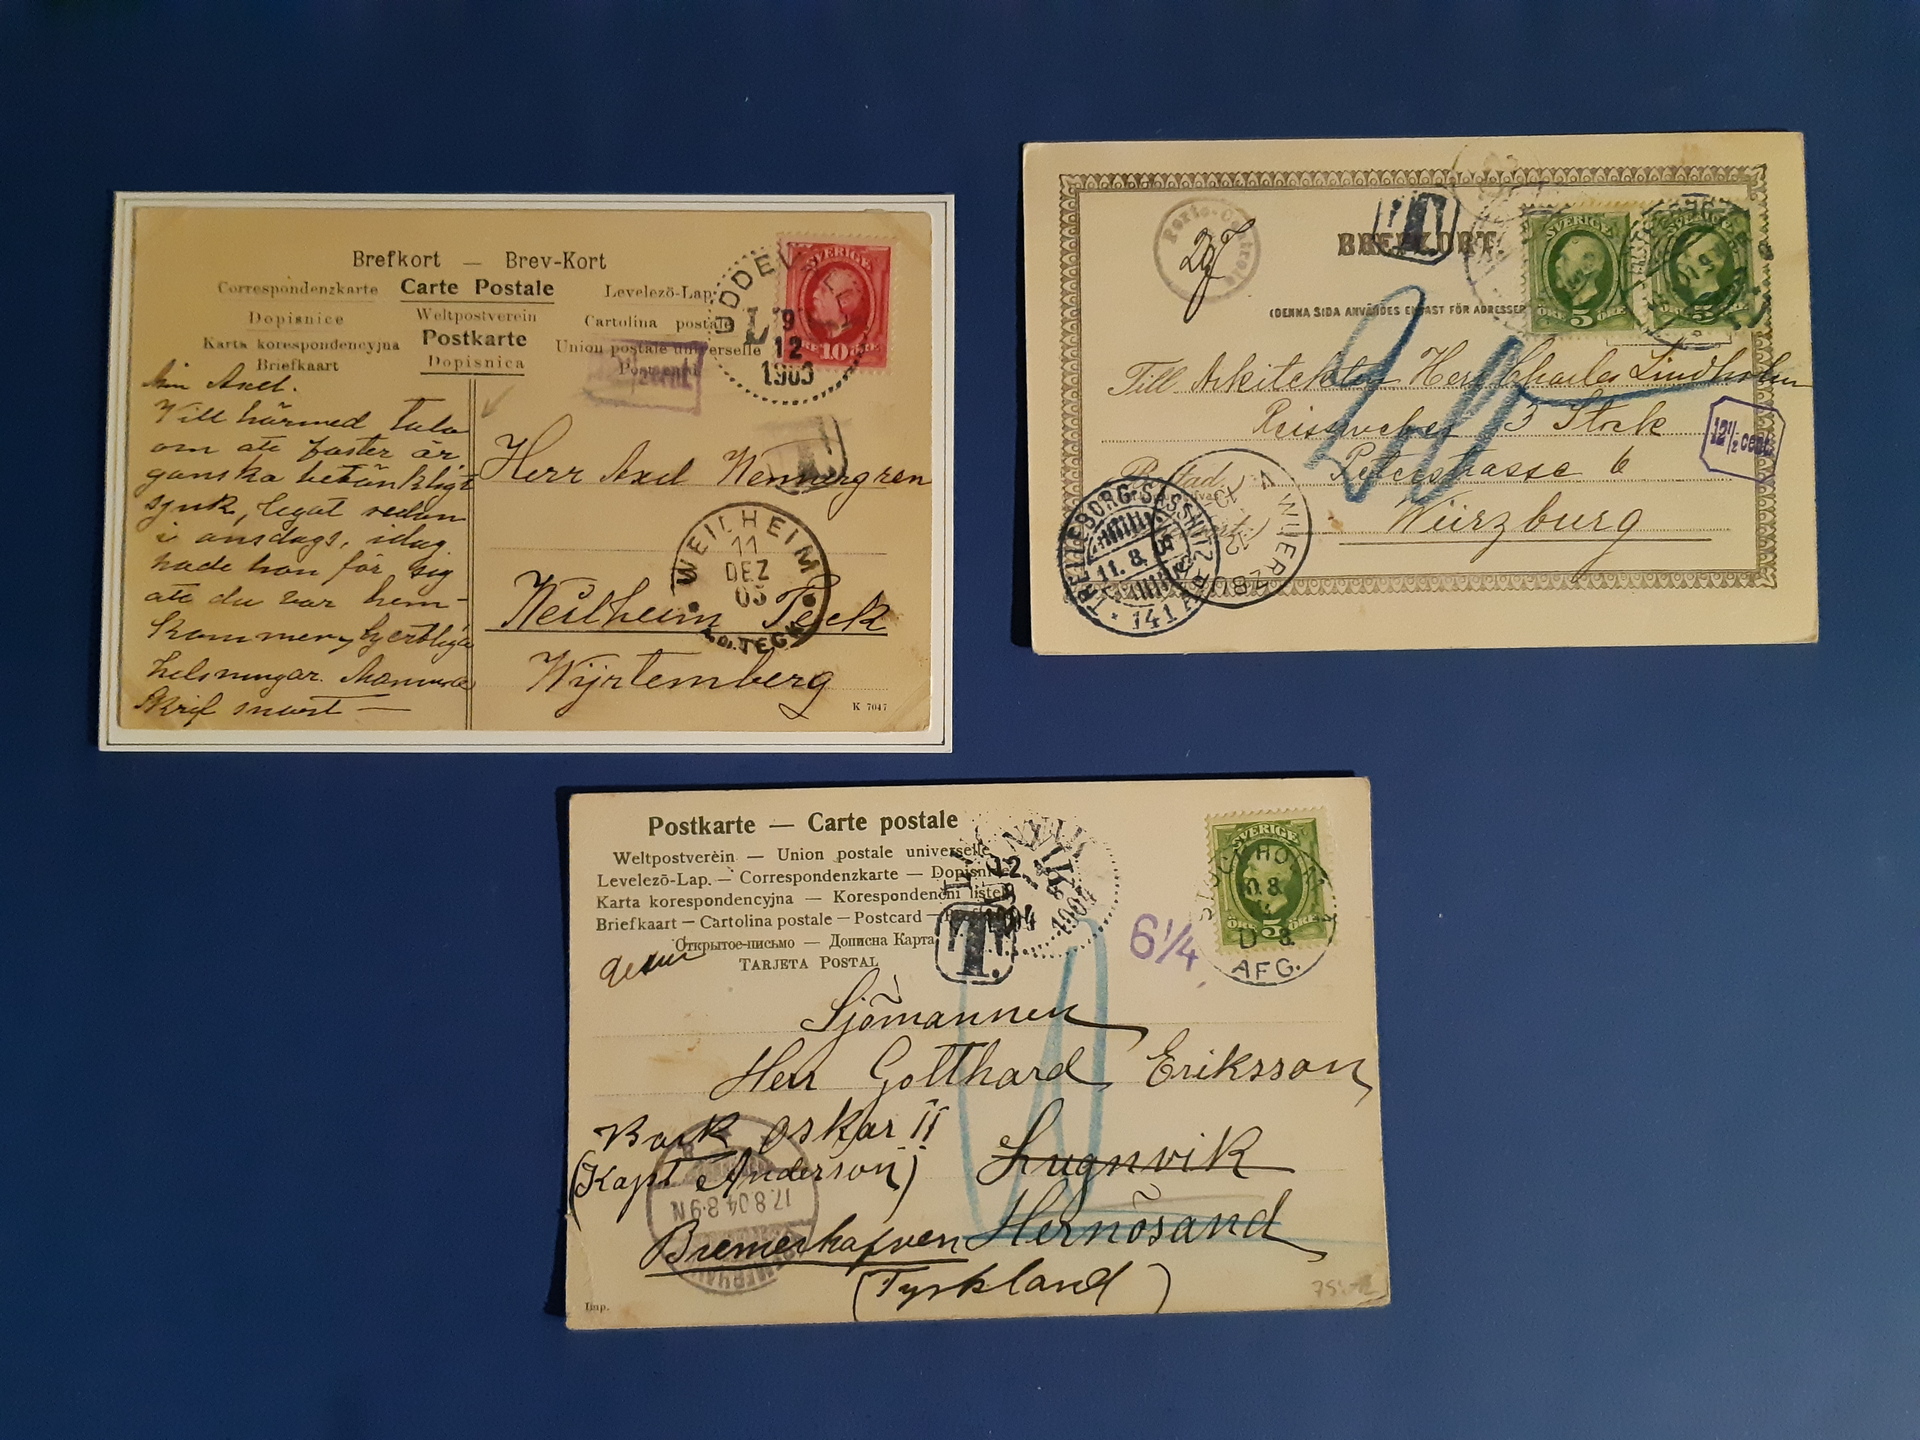 Brefkort — Brev-Kort
Correspondenzkarte Carte Postale Levelezõ-Lap
Dopisnice Weltpostverein Cartolina postale
Karta korespondencyjna Postkarte Union postale universelle
Briefkaart Dopisnica Postcard
UDDEVALLA
L 9
12
1903
SVERIGE
10 ÖRE
T
Min Axel.
Vill härmed tala
om att faster är
ganska betänkligt
sjuk, legat sedan
i onsdags, idag
hade hon för sig
att du var hem-
kommen, hjertliga
helsningar.
Skrif snart —
Herr Axel Wennergren
WEILHEIM
11
DEZ
03
a.d. TECK
Weilheim Teck
Wyrtemberg
K 7047
Porto-Controle
BREFKORT
T
SVERIGE SVERIGE
ÖRE 5 ÖRE ÖRE 5 ÖRE
(DENNA SIDA ANVÄNDES ENDAST FÖR ADRESSEN
20
Till Arkitekten Herr Charles Lindholm
3 Stock
12½ cent.
Peterstrasse 6
Würzburg
TRELLEBORG-SASSNITZ
11. 8.
141 A
WUERZBURG
Postkarte — Carte postale
Weltpostverèin — Union postale universelle
Levelezõ-Lap. — Correspondenzkarte — Dopisnice
Karta korespondencyjna — Korespondenční listek
Briefkaart — Cartolina postale — Postcard —
Открытое-письмо — Дописна Карта
TARJETA POSTAL
LUGNVIK
12
8
1904
T.
6¼
SVERIGE
ÖRE 5 ÖRE
STOCKHOLM
D 8.
AFG.
10
Sjömannen
Herr Gotthard Eriksson
Bark Oskar II
(Kapt Anderson) Lugnvik
17.8.04.8-9N
Bremerhafven Hernösand
(Tyskland)
Imp.